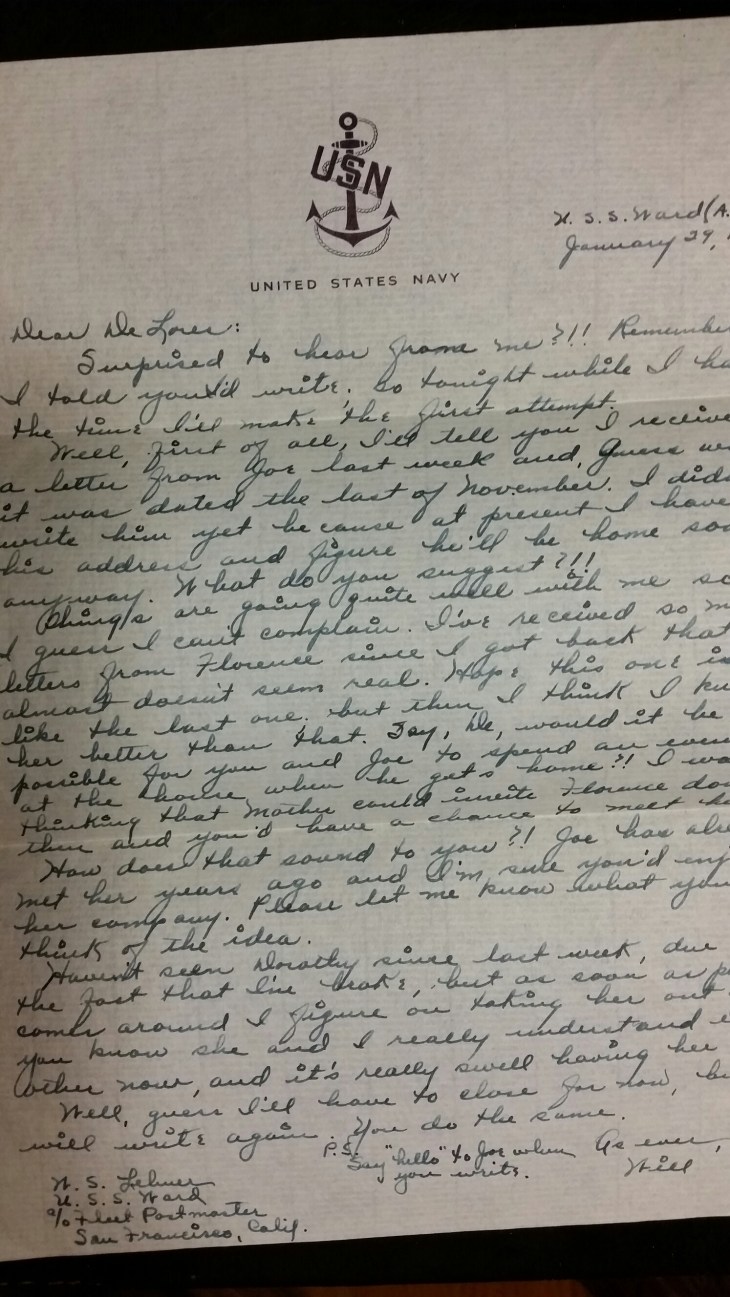 USN
UNITED STATES NAVY
U. S. S. Ward (A.
January 29,
Dear De Lores:
Surprised to hear from me?!! Remember
I told you I'd write. So tonight while I ha
the time I'll make the first attempt.
Well, first of all, I'll tell you I receive
a letter from Joe last week and, Guess w
it was dated the last of November. I did
write him yet because at present I have
his address and figure he'll be home so
anyway. What do you suggest?!!
Things are going quite well with me so
I guess I can't complain. I've received so m
letters from Florence since I got back that
almost doesn't seem real. Hope this one is
like the last one. but then I think I kn
her better than that. Say, De, would it be
possible for you and Joe to spend an even
at the house when he gets home?! I wa
thinking that Mother could invite Florence do
then and you'd have a chance to meet he
How does that sound to you?! Joe has alre
met her years ago and I'm sure you'd enj
her company. Please let me know what you
think of the idea.
Haven't seen Dorothy since last week, due
the fact that I'm broke, but as soon as p
comes around I figure on taking her out
you know she and I really understand e
other now, and it's really swell having her
Well, guess I'll have to close for now, bu
will write again. You do the same.
P.S. Say "hello" to Joe when
you write.
As ever,
Will
W. S. Lehner
U. S. S. Ward
c/o Fleet Postmaster
San Francisco, Calif.